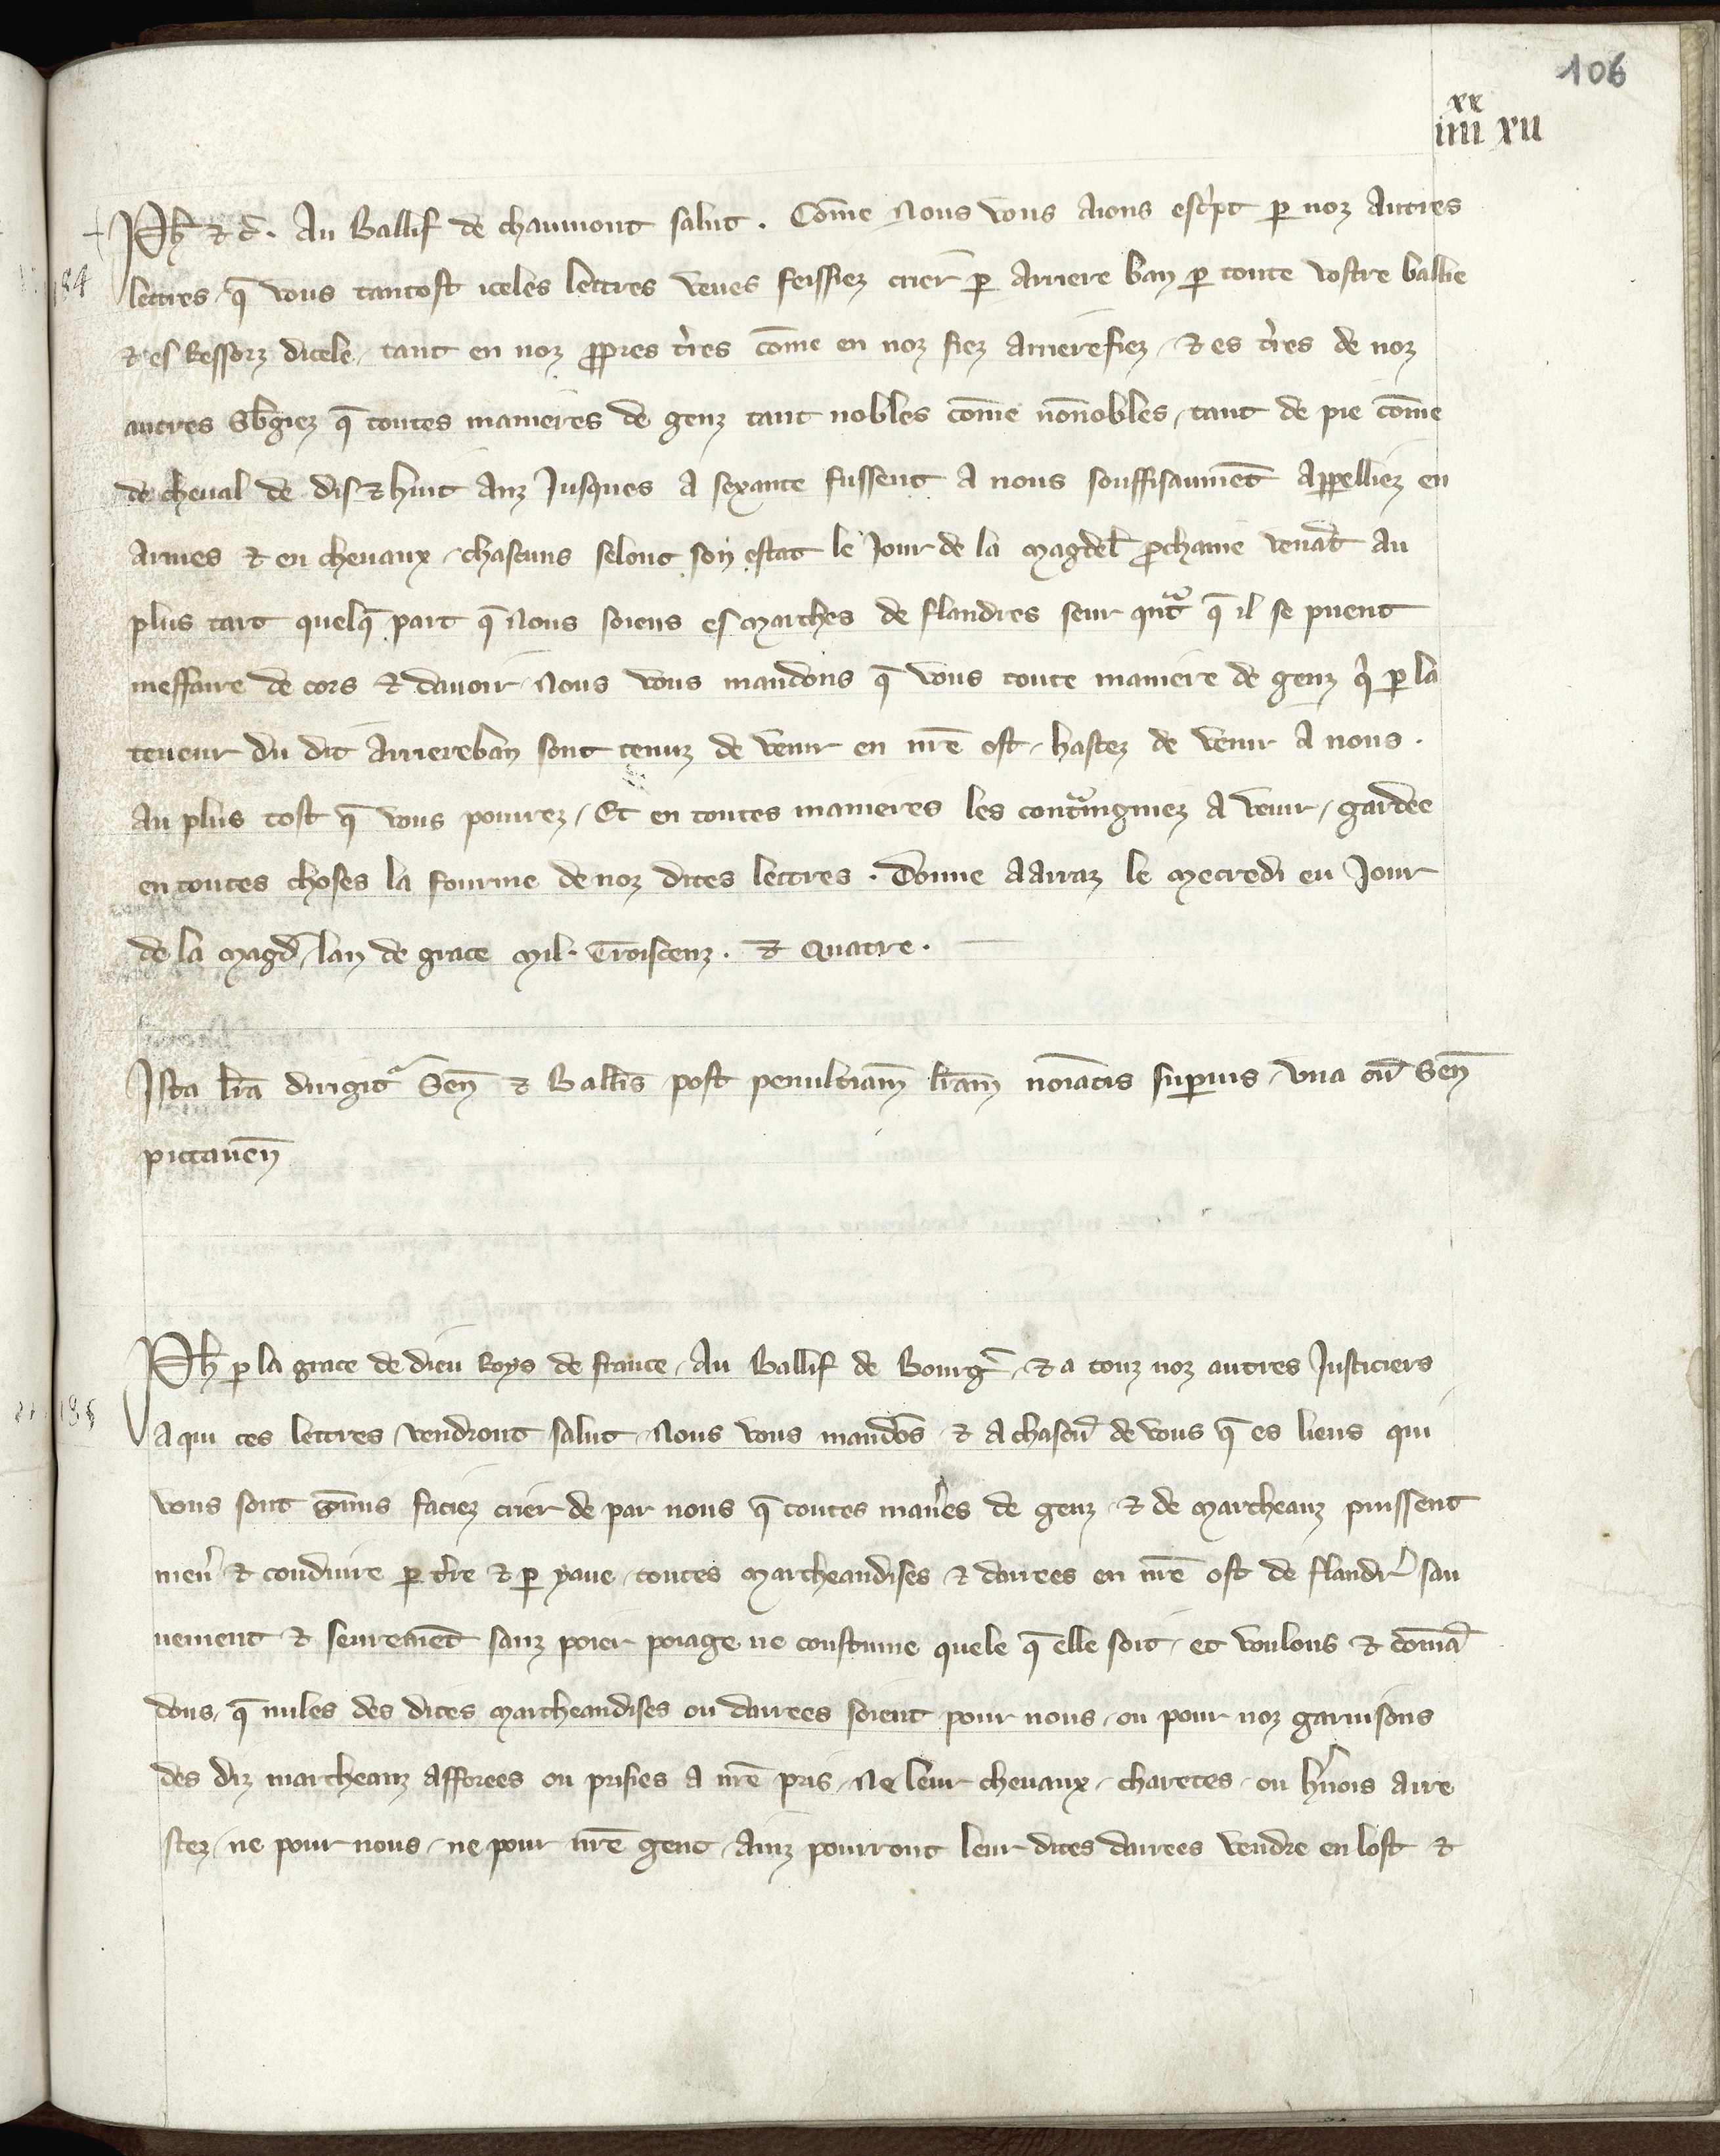 106
xx
iiii xii
Ph̄ ⁊ c̄. Au Ballif de chaumont salut. Cōme nous vous aions esc̍pt ꝑ noz autres
184
lettres q̄ vous tantost iceles lettres veues feissiez crier ꝑ arriere ban ꝑ toute vostre ballie
⁊ es Ressorz dicele, tant en noz ꝓpres t̍res cōme en noz fiez arrierefiez, ⁊ es t̍res de noz
autres Sb̄giez q̄ toutes manieres de genz tant nobles cōme nōnobles, tant de pie cōme
de cheual de dis ⁊ huit anz Jusques a sexante fussent a nous souffisaumēt appelliez en
armes ⁊ en cheuaux, chascuns selont son estat le Jour de la magdel̄ ꝓchaine venāt au
plus tart quelq̄ part q̄ nous soiens es marches de flandres seur qn̄t q̄ il se puent
meffaire de cors ⁊ dauoir, nous vous mandons q̄ vous toute maniere de genz q̍ ꝑ la
teneur du dit arriereban sont tenuz de venir en nr̄e ost, hastez de venir a nous.
au plus tost q̄ vous pourrez, Et en toutes manieres les contͣingniez a venir, gardee
en toutes choses la fourme de noz dites lettres. Donne a arraz le mecredi en Jour
de la magd̄, lan de grace mil. Troiscenz. ⁊ Quatre.
Ista lr̄a dirigitᷣ Sen̄ ⁊ Balliis post penultiam̄ lr̄am noīatis supͥus, vna cū Sen̄
pictauen̄
Ph̄ ꝑ la grace de dieu Roys de france, Au Ballif de Bourḡ, ⁊ a touz noz autres Justiciers
185
a qui ces lettres vendront salut, nous vous mandōs ⁊ a chascū de vous q̄ es liens qui
vous sont faciez crier de par nous q̄ toutes man̍es de genz, ⁊ de marcheanz puissent
men̍ ⁊ conduire ꝑ t̍re ⁊ ꝑ yaue, toutes marcheandises ⁊ danrees en nr̄e ost de flandr̄ sau
uement ⁊ seuremēt sanz poier poiage ne coustume quele q̄ elle soit, et voulons ⁊ cōmā
dons, q̄ nules des dites marcheandises ou danrees soient pour nous, ou pour noz garnisons
des diz marcheanz afforees ou prisies a nr̄e pris, Ne leur cheuaux, charetes, ou h̍nois arre
stez, ne pour nous, ne pour nr̄e gent, ainz pourront leur dites danrees vendre en lost ⁊